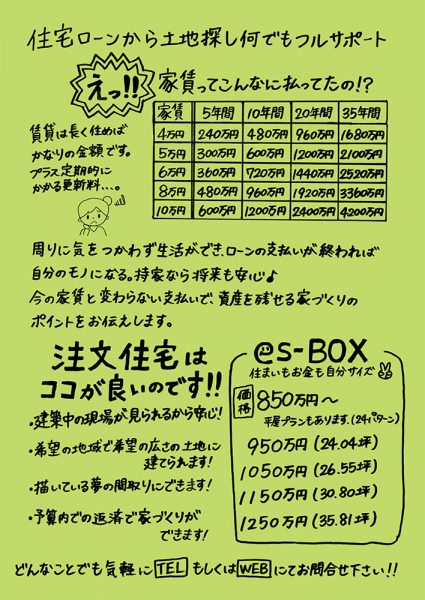 住宅ローンから土地探し何でもフルサポート
えっ!!
家賃ってこんなに払ってたの!?
賃貸は長く住めば
かなりの金額です。
プラス定期的に
かかる更新料...。
家賃 5年間 10年間 20年間 35年間
4万円 240万円 480万円 960万円 1680万円
5万円 300万円 600万円 1200万円 2100万円
6万円 360万円 720万円 1440万円 2520万円
8万円 480万円 960万円 1920万円 3360万円
10万円 600万円 1200万円 2400万円 4200万円
周りに気をつかわず生活ができ、ローンの支払いが終われば
自分のモノになる。持家なら将来も安心♪
今の家賃と変わらない支払いで、資産を残せる家づくりの
ポイントをお伝えします。
注文住宅は
ココが良いのです!!
・建築中の現場が見られるから安心!
・希望の地域で希望の広さの土地に
建てられます!
・描いている夢の間取りにできます!
・予算内での返済で家づくりが
できます!
es-BOX
住まいもお金も自分サイズ
価格 850万円〜
平屋プランもあります。(24パターン)
950万円(24.04坪)
1050万円(26.55坪)
1150万円(30.80坪)
1250万円(35.81坪)
どんなことでも気軽にTELもしくはWEBにてお問合せ下さい!!